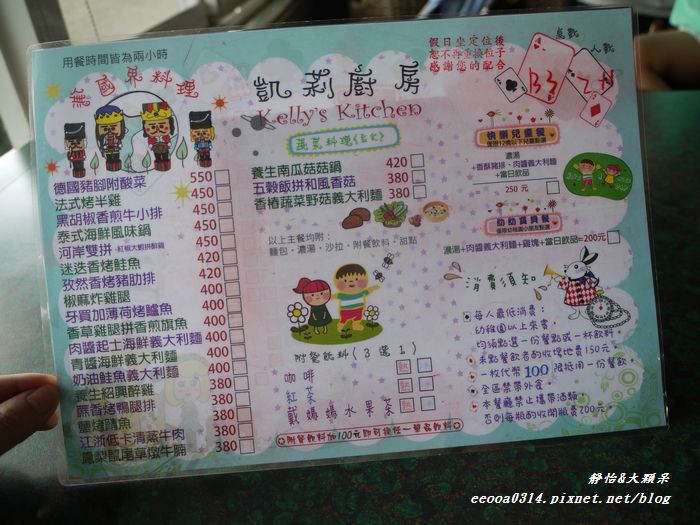 用餐時間皆為兩小時
無國界料理
凱莉廚房
Kelly's Kitchen
假日坐定位後
恕不再重換位子
感謝您的配合
桌號
人數
B3
德國豬腳附酸菜 550
法式烤半雞 450
黑胡椒香煎牛小排 450
泰式海鮮風味鍋 450
河岸雙拼 紅椒大蝦拼醉雞 450
迷迭香烤鮭魚 420
孜然香烤豬肋排 420
椒麻炸雞腿 420
牙買加薄荷烤鱸魚 400
香草雞腿拼香煎旗魚 400
肉醬起士海鮮義大利麵 400
青醬海鮮義大利麵 400
奶油鮭魚義大利麵 400
養生紹興醉雞 380
蔗香烤鴨腿排 380
鹽烤鯖魚 380
江浙低卡清蒸牛肉 380
鳳梨鼠尾草燉牛腩 380
蔬菜料理(全火)
養生南瓜菇菇鍋 420
五穀飯拼和風香菇 380
香椿蔬菜野菇義大利麵 380
以上主餐均附：
麵包．濃湯．沙拉．附餐飲料．甜點
附餐飲料(3選1)
咖啡 熱 冰
紅茶 熱 冰
戴媽媽水果茶 熱 冰
附餐飲料加100元即可換任一單品飲料
快樂兒童餐
僅限12歲以下兒童點選
濃湯
+香酥豬排、肉醬義大利麵
+當日飲品
250元
幼幼寶貝餐
僅限幼稚園小朋友點選
濃湯+肉醬義大利麵+雞塊+當日飲品=200元
消費須知
每人最低消費：
幼稚園以上來賓，
均須點選一份餐點或一杯飲料，
未點餐飲者酌收場地費150元。
一枚代幣100限抵用一份餐飲
全區禁帶外食
本餐廳禁止攜帶酒類
否則每瓶酌收開瓶費200元。
靜怡&大顆呆
eeooa0314.pixnet.net/blog